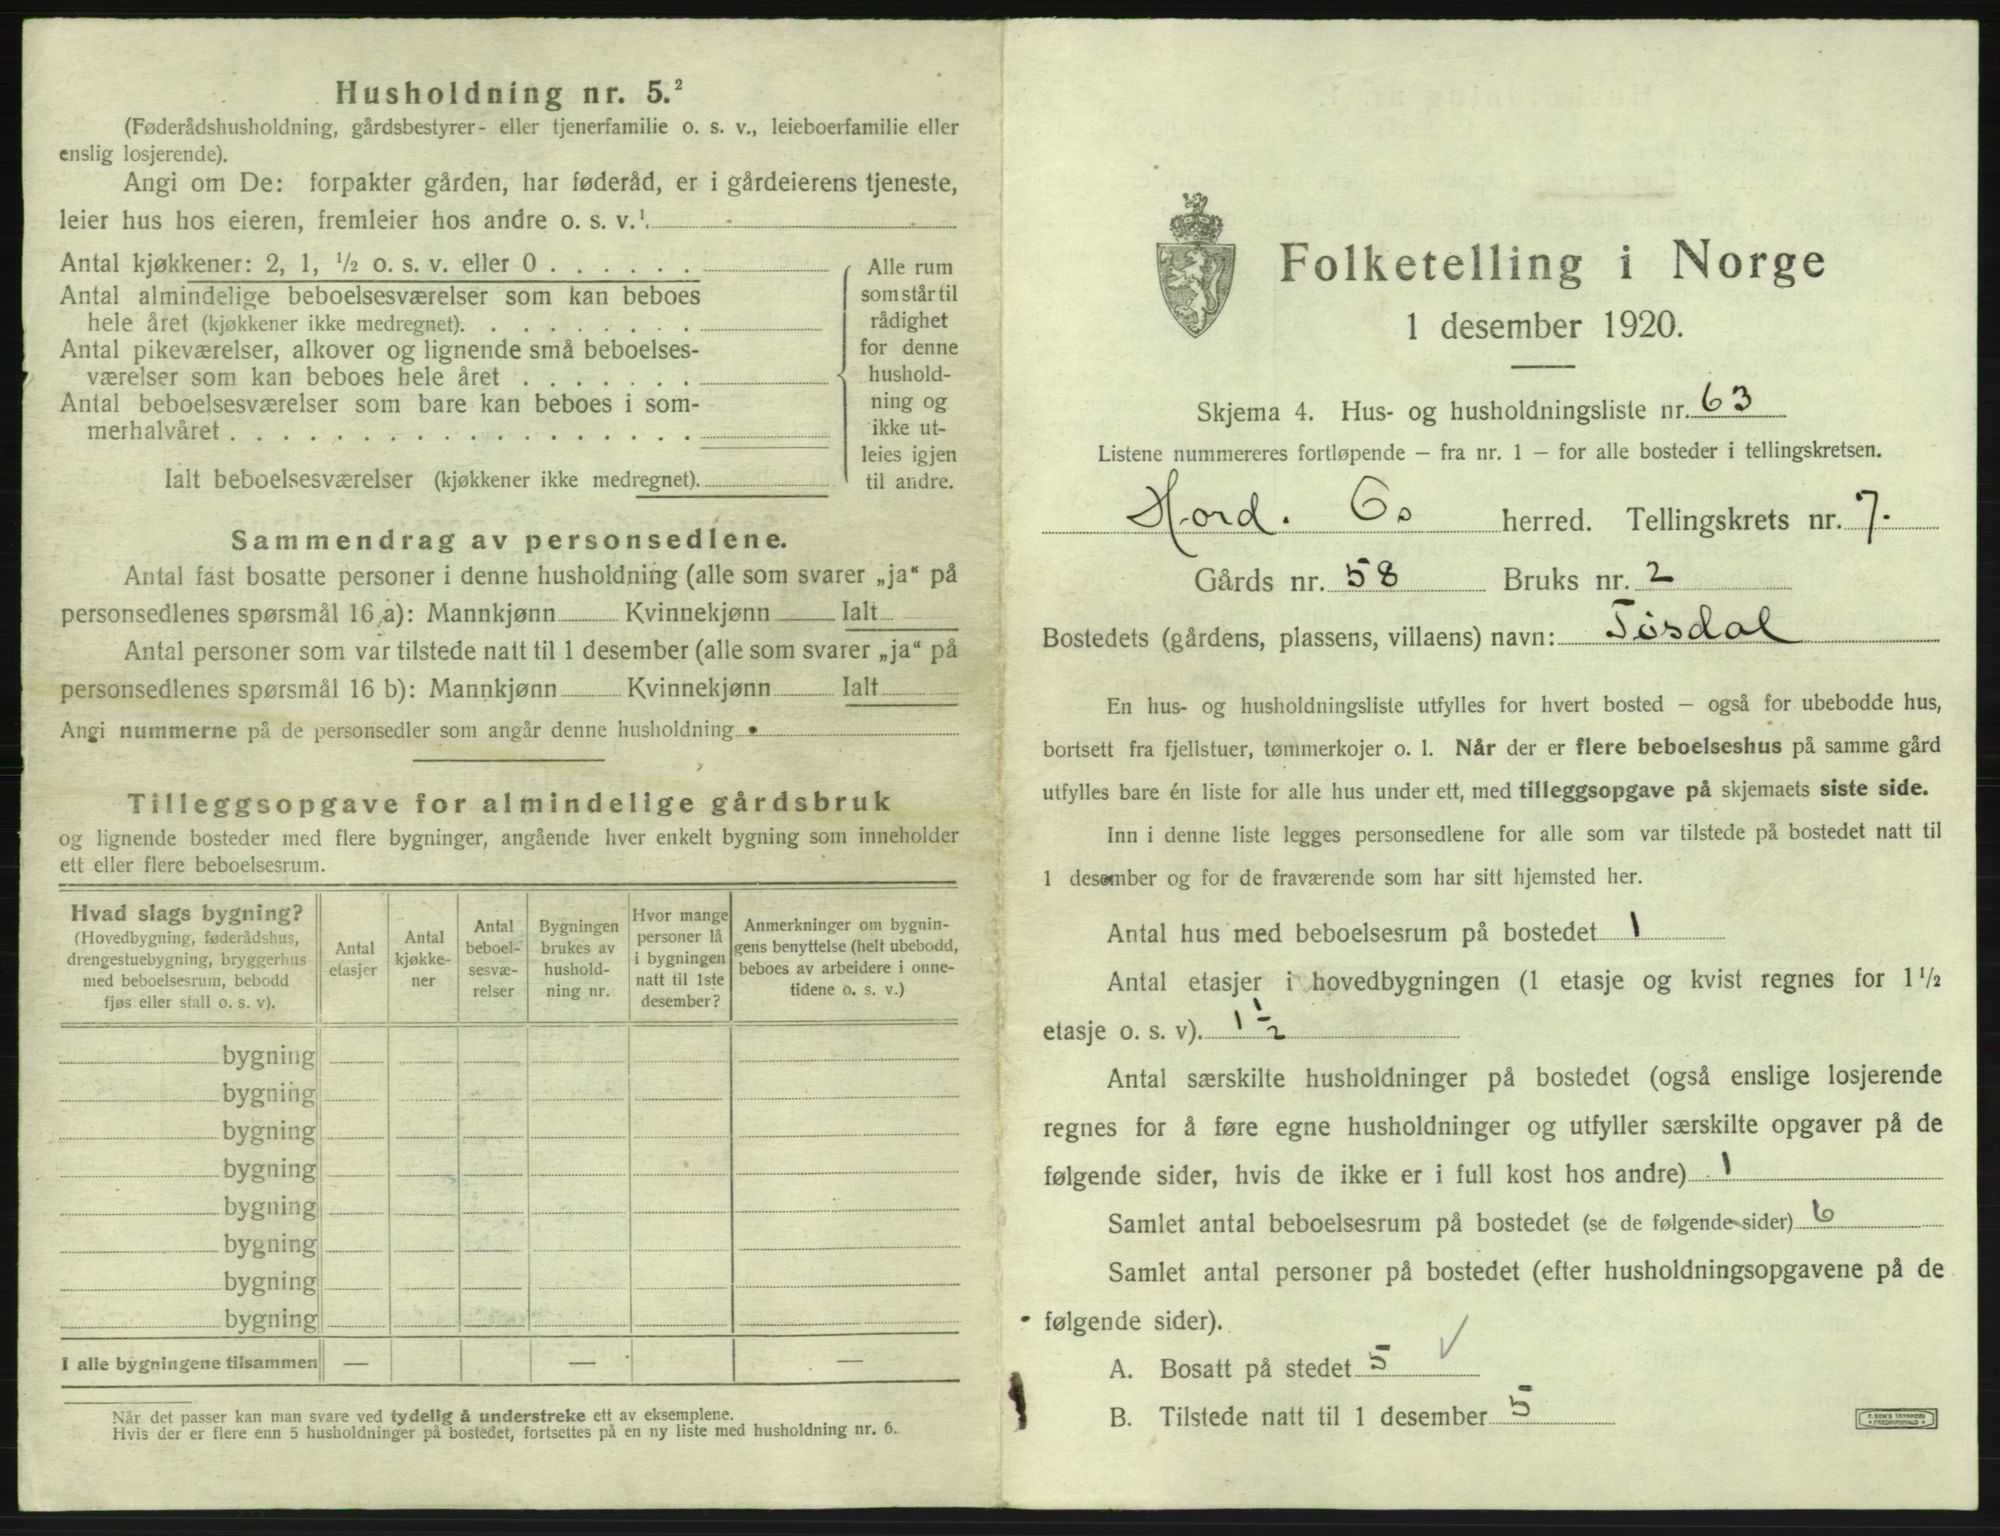 Husholdning nr. 5.²
(Føderådshusholdning, gårdsbestyrer- eller tjenerfamilie o. s. v., leieboerfamilie eller
enslig losjerende).
Angi om De: forpakter gården, har føderåd, er i gårdeierens tjeneste,
leier hus hos eieren, fremleier hos andre o. s. v.¹.
Antal kjøkkener: 2, 1, ½ o. s. v. eller 0 . . . . . .
Antal almindelige beboelsesværelser som kan beboes
hele året (kjøkkener ikke medregnet). . . . . . . . .
Antal pikeværelser, alkover og lignende små beboelses-
værelser som kan beboes hele året . . . . . . .
Antal beboelsesværelser som bare kan beboes i som-
merhalvåret . . . . . . . . . . . . . . . . . .
Ialt beboelsesværelser (kjøkkener ikke medregnet).
Alle rum
som står til
rådighet
for denne
hushold-
ning og
ikke ut-
leies igjen
til andre.
Sammendrag av personsedlene.
Antal fast bosatte personer i denne husholdning (alle som svarer „ja“ på
personsedlenes spørsmål 16 a): Mannkjønn Kvinnekjønn Ialt
Antal personer som var tilstede natt til 1 desember (alle som svarer „ja“ på
personsedlenes spørsmål 16 b): Mannkjønn Kvinnekjønn Ialt
Angi nummerne på de personsedler som angår denne husholdning
Tilleggsopgave for almindelige gårdsbruk
og lignende bosteder med flere bygninger, angående hver enkelt bygning som inneholder
ett eller flere beboelsesrum.
Hvad slags bygning?
(Hovedbygning, føderådshus,
drengestuebygning, bryggerhus
med beboelsesrum, bebodd
fjøs eller stall o. s. v).
Antal
etasjer
Antal
kjøkke-
ner
Antal
beboel-
sesvæ-
relser
Bygningen
brukes av
hushold-
ning nr.
Hvor mange
personer lå
i bygningen
natt til 1ste
desember?
Anmerkninger om bygnin-
gens benyttelse (helt ubebodd,
beboes av arbeidere i onne-
tidene o. s. v.)
bygning
bygning
bygning
bygning
bygning
bygning
bygning
bygning
I alle bygningene tilsammen — — —
Når det passer kan man svare ved tydelig å understreke ett av eksemplene.
Hvis der er flere enn 5 husholdninger på bostedet, fortsettes på en ny liste med husholdning nr. 6.
Folketelling i Norge
1 desember 1920.
Skjema 4. Hus- og husholdningsliste nr. 63
Listene nummereres fortløpende — fra nr. 1 — for alle bosteder i tellingskretsen.
Hord. Os herred. Tellingskrets nr. 7.
Gårds nr. 58 Bruks nr. 2
Bostedets (gårdens, plassens, villaens) navn: Tøsdal
En hus- og husholdningsliste utfylles for hvert bosted — også for ubebodde hus,
bortsett fra fjellstuer, tømmerkojer o. l. Når der er flere beboelseshus på samme gård
utfylles bare én liste for alle hus under ett, med tilleggsopgave på skjemaets siste side.
Inn i denne liste legges personsedlene for alle som var tilstede på bostedet natt til
1 desember og for de fraværende som har sitt hjemsted her.
Antal hus med beboelsesrum på bostedet 1
Antal etasjer i hovedbygningen (1 etasje og kvist regnes for 1 ½
etasje o. s. v). 1 ½
Antal særskilte husholdninger på bostedet (også enslige losjerende
regnes for å føre egne husholdninger og utfyller særskilte opgaver på de
følgende sider, hvis de ikke er i full kost hos andre) 1
Samlet antal beboelsesrum på bostedet (se de følgende sider) 6
Samlet antal personer på bostedet (efter husholdningsopgavene på de
følgende sider).
A. Bosatt på stedet 5 ✓
B. Tilstede natt til 1 desember 5